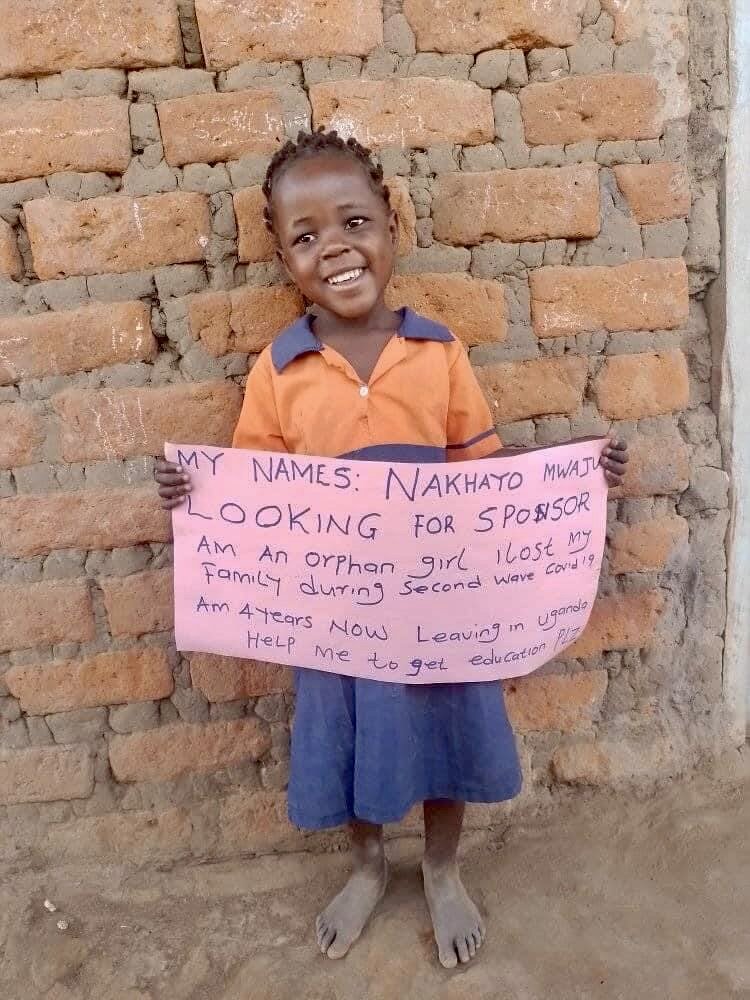 MY NAMES: NAKHATO MWAJU
LOOKING FOR SPONSOR
Am An orphan girl i lost my
Family during Second wave Covid 19
Am 4 years NOW Leaving in uganda
HeLP me to get education PLZ